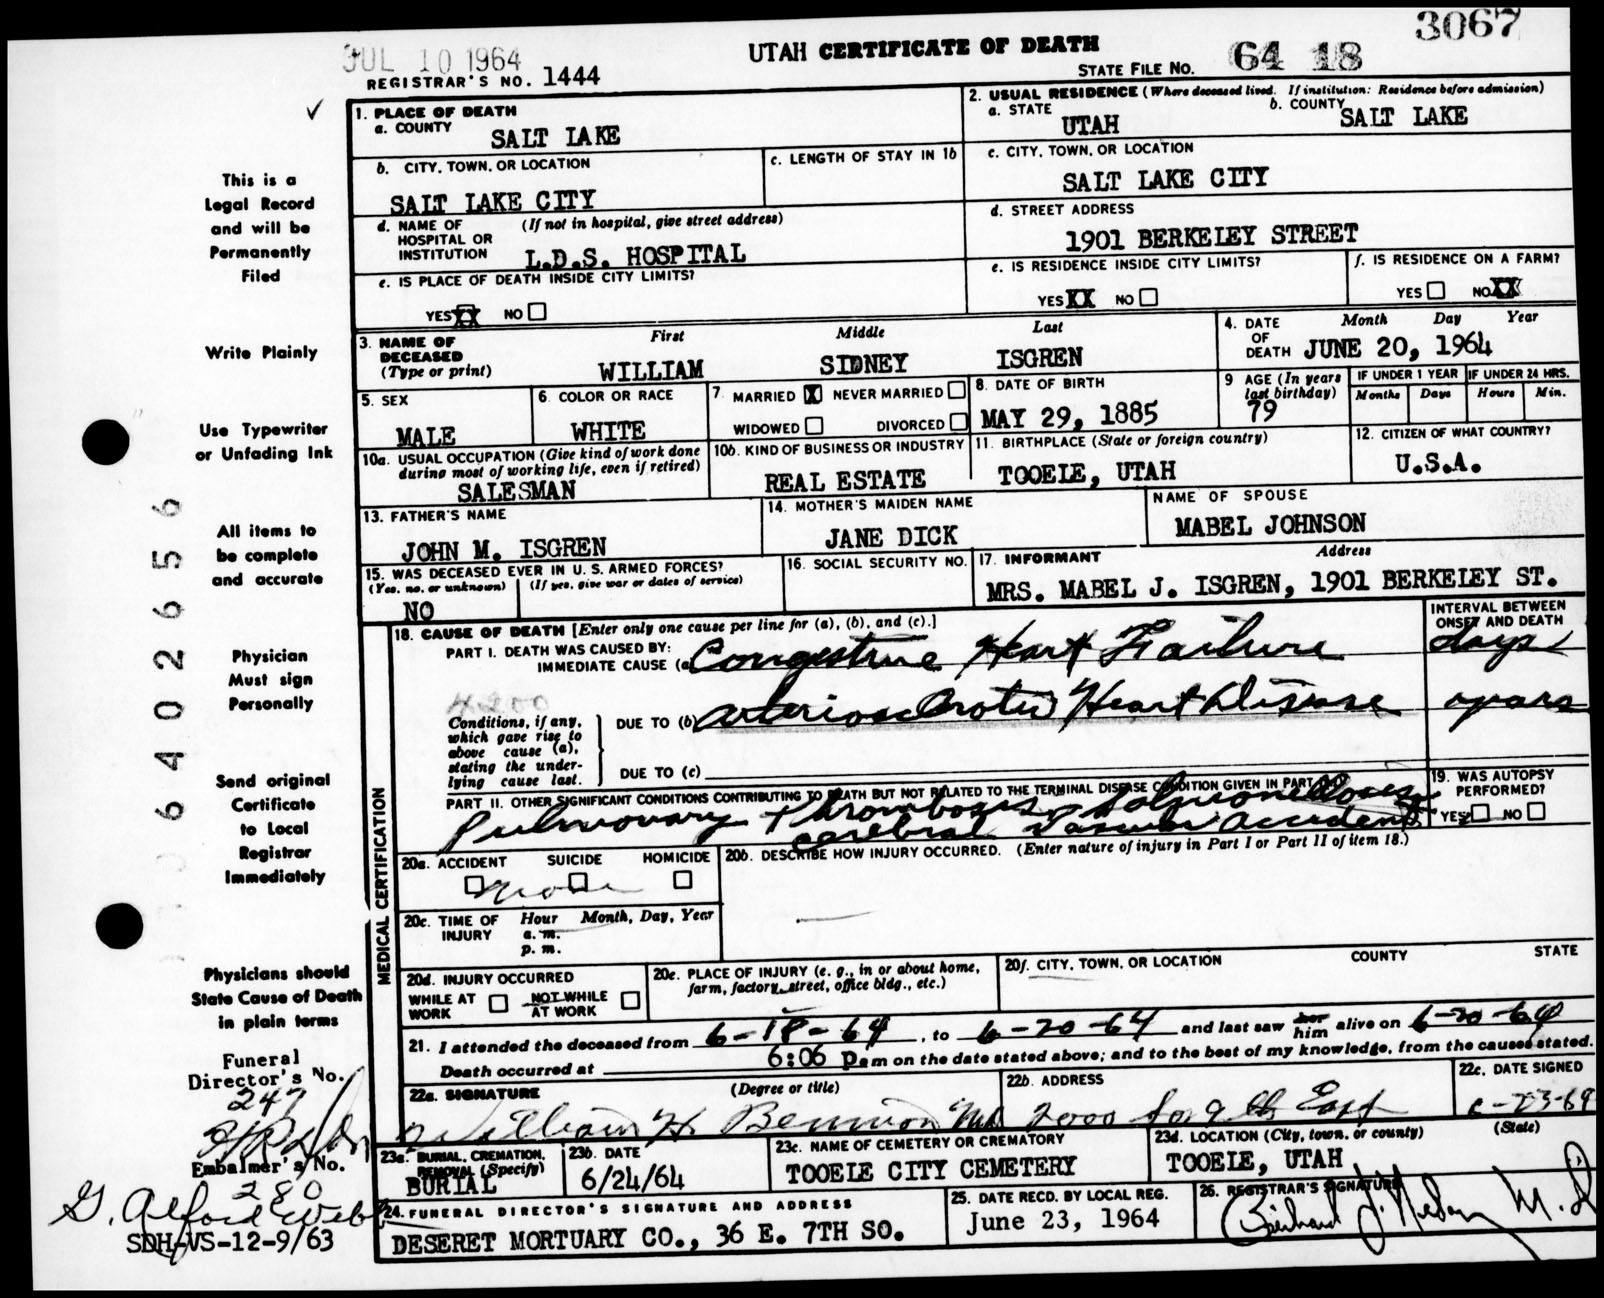 3067
JUL 10 1964
UTAH CERTIFICATE OF DEATH
REGISTRAR'S NO. 1444
STATE FILE NO. 64 18
This is a
Legal Record
and will be
Permanently
Filed
Write Plainly
Use Typewriter
or Unfading Ink
All items to
be complete
and accurate
Physician
Must sign
Personally
Send original
Certificate
to Local
Registrar
Immediately
Physicians should
State Cause of Death
in plain terms
Funeral
Director's No.
247
Embalmer's No.
280
G. Alford Webb
SDH-VS-12-9/63
64026556
1. PLACE OF DEATH
a. COUNTY
SALT LAKE
2. USUAL RESIDENCE (Where deceased lived. If institution: Residence before admission)
a. STATE
UTAH
b. COUNTY
SALT LAKE
b. CITY, TOWN, OR LOCATION
SALT LAKE CITY
c. LENGTH OF STAY IN 1b
c. CITY, TOWN, OR LOCATION
SALT LAKE CITY
d. NAME OF HOSPITAL OR INSTITUTION
(If not in hospital, give street address)
L.D.S. HOSPITAL
d. STREET ADDRESS
1901 BERKELEY STREET
e. IS PLACE OF DEATH INSIDE CITY LIMITS?
YES XX NO
e. IS RESIDENCE INSIDE CITY LIMITS?
YES XX NO
f. IS RESIDENCE ON A FARM?
YES NO XX
3. NAME OF DECEASED
(Type or print)
First Middle Last
WILLIAM SIDNEY ISGREN
4. DATE OF DEATH
Month Day Year
JUNE 20, 1964
5. SEX
MALE
6. COLOR OR RACE
WHITE
7. MARRIED X NEVER MARRIED
WIDOWED DIVORCED
8. DATE OF BIRTH
MAY 29, 1885
9 AGE (In years last birthday)
79
IF UNDER 1 YEAR
Months Days
IF UNDER 24 HRS.
Hours Min.
10a. USUAL OCCUPATION (Give kind of work done during most of working life, even if retired)
SALESMAN
10b. KIND OF BUSINESS OR INDUSTRY
REAL ESTATE
11. BIRTHPLACE (State or foreign country)
TOOELE, UTAH
12. CITIZEN OF WHAT COUNTRY?
U.S.A.
13. FATHER'S NAME
JOHN M. ISGREN
14. MOTHER'S MAIDEN NAME
JANE DICK
NAME OF SPOUSE
MABEL JOHNSON
15. WAS DECEASED EVER IN U. S. ARMED FORCES?
(Yes, no, or unknown) (If yes, give war or dates of service)
NO
16. SOCIAL SECURITY NO.
17. INFORMANT Address
MRS. MABEL J. ISGREN, 1901 BERKELEY ST.
MEDICAL CERTIFICATION
18. CAUSE OF DEATH [Enter only one cause per line for (a), (b), and (c).]
INTERVAL BETWEEN ONSET AND DEATH
PART I. DEATH WAS CAUSED BY:
IMMEDIATE CAUSE (a) Congestive Heart Failure days
4200
Conditions, if any, which gave rise to above cause (a), stating the underlying cause last.
DUE TO (b) Arteriosclerotic Heart Disease years
DUE TO (c)
PART II. OTHER SIGNIFICANT CONDITIONS CONTRIBUTING TO DEATH BUT NOT RELATED TO THE TERMINAL DISEASE CONDITION GIVEN IN PART
Pulmonary Thromboses
cerebral Vascular Accident
19. WAS AUTOPSY PERFORMED?
YES NO
20a. ACCIDENT SUICIDE HOMICIDE
None
20b. DESCRIBE HOW INJURY OCCURRED. (Enter nature of injury in Part I or Part II of item 18.)
20c. TIME OF INJURY
Hour Month, Day, Year
a. m.
p. m.
20d. INJURY OCCURRED
WHILE AT WORK NOT WHILE AT WORK
20e. PLACE OF INJURY (e. g., in or about home, farm, factory, street, office bldg., etc.)
20f. CITY, TOWN, OR LOCATION COUNTY STATE
21. I attended the deceased from 6-18-64, to 6-20-64 and last saw her him alive on 6-20-64
Death occurred at 6:06 p.m on the date stated above; and to the best of my knowledge, from the causes stated.
22a. SIGNATURE (Degree or title)
William H. Bennion MD
22b. ADDRESS
2000 So 9th East
22c. DATE SIGNED
6-23-64
23a. BURIAL, CREMATION, REMOVAL (Specify)
BURIAL
23b. DATE
6/24/64
23c. NAME OF CEMETERY OR CREMATORY
TOOELE CITY CEMETERY
23d. LOCATION (City, town, or county) (State)
TOOELE, UTAH
24. FUNERAL DIRECTOR'S SIGNATURE AND ADDRESS
DESERET MORTUARY CO., 36 E. 7TH SO.
25. DATE RECD. BY LOCAL REG.
June 23, 1964
26. REGISTRAR'S SIGNATURE
M.D.